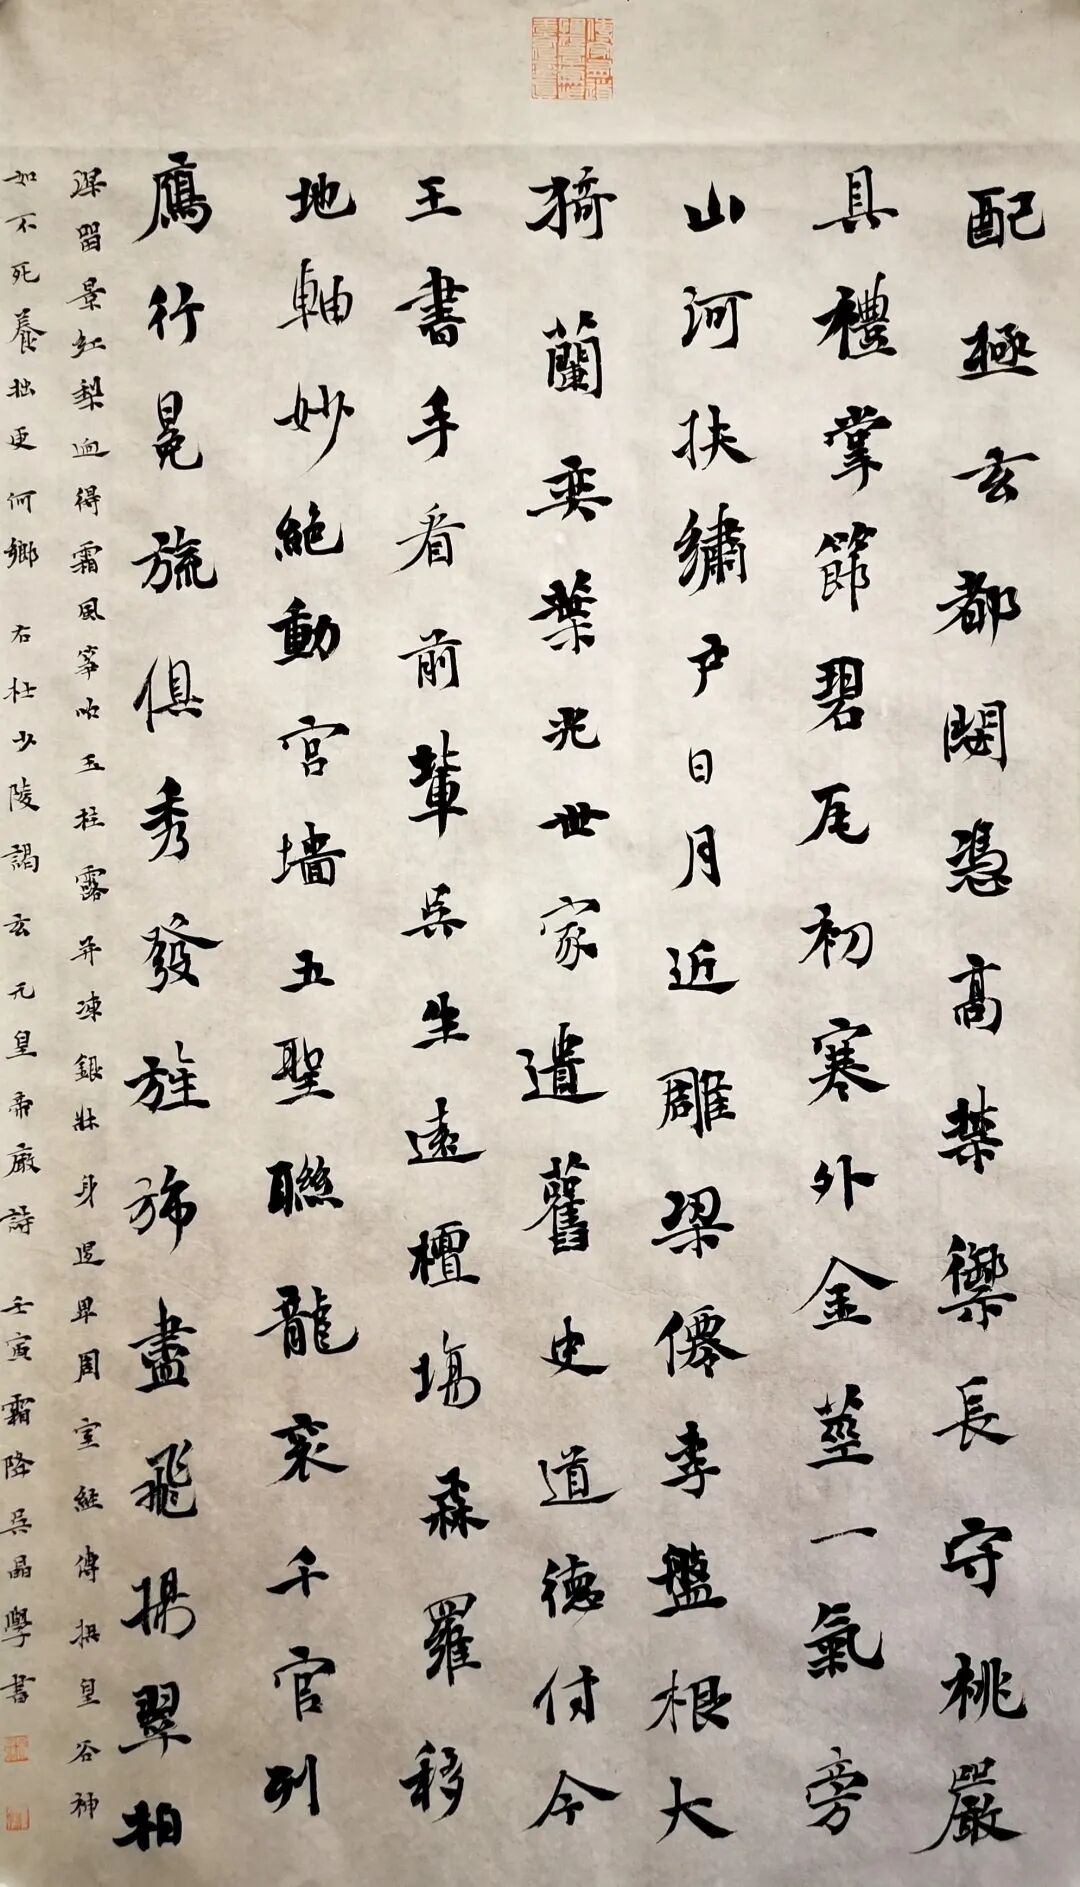 配極玄都閟憑高禁籞長守祧嚴
具禮掌節碧瓦初寒外金莖一氣旁
山河扶繡戶日月近雕梁僊李盤根大
猗蘭奕葉光世家遺舊史道德付今
王書手看前輩吳生遠檀場森羅移
地軸妙絕動宮墻五聖聯龍袞千官列
鴈行冕旒俱秀發旌旆盡飛揚翠柏
深留景紅梨迥得霜風箏吹玉柱露井凍銀牀身退卑周室經傳拱皇谷神
如不死養拙更何鄉 右杜少陵謁玄元皇帝廟詩 壬寅霜降吳晶學書